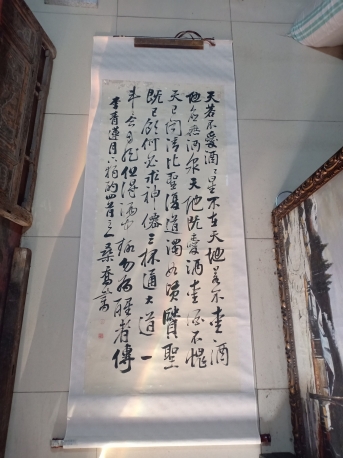 天若不愛酒酒星不在天地若不愛酒
地應無酒泉天地既愛酒愛酒不愧
天已聞清比聖復道濁如賢賢聖
既已飲何必求神僊三杯通大道一
斗合自然但得酒中趣勿為醒者傳
李青蓮月下獨酌四首之